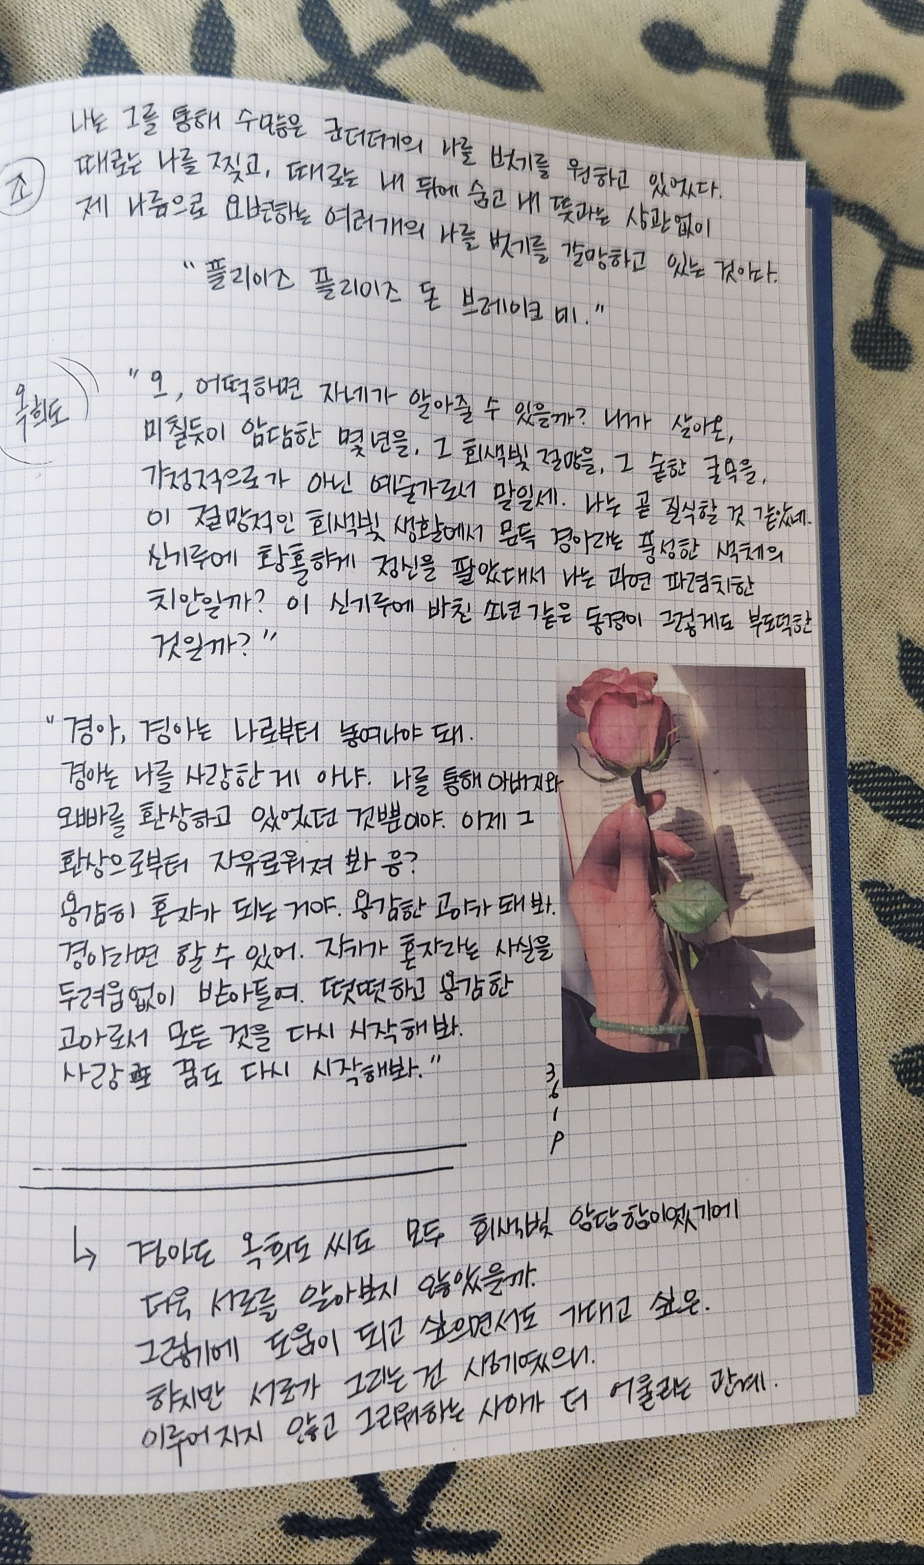 나는 그를 통해 수많은 군더더기의 나를 벗기를 원하고 있었다.
조
때로는 나를 찢고, 때로는 내 뒤에 숨고 내 뜻과는 상관없이
제 나름으로 모변하는 여러개의 나를 벗기를 갈망하고 있는 것이다.
"플리이즈 플리이즈 돈 브레이크 미."
옥희도
"오, 어떡하면 자네가 알아줄 수 있을까? 내가 살아온,
미칠듯이 암담한 몇년을, 그 회색빛 절망을, 그 숱한 굴욕을,
가정적으로가 아닌 예술가로서 말일세. 나는 곧 질식할 것 같았네.
이 절망적인 회색빛 생활에서 문득 경아라는 풍성한 색채의
신기루에 황홀하게 정신을 팔았대서 나는 과연 파렴치한
치한일까? 이 신기루에 바친 소년같은 동경이 그렇게도 부도덕한
것일까?"
"경아, 경아는 나로부터 놓여나야 돼.
경아는 나를 사랑한게 아냐. 나를 통해 아버지와
오빠를 환상하고 있었던 것뿐이야. 이제 그
환상으로부터 자유로워져 봐 응?
용감히 혼자가 되는 거야. 용감한 고아가 돼봐.
경아라면 할 수 있어. 자기가 혼자라는 사실을
두려움없이 받아들여. 떳떳하고 용감한
고아로서 모든 것을 다시 시작해봐.
사랑도 꿈도 다시 시작해봐."
361P
↳ 경아도 옥희도 씨도 모두 회색빛 암담함이였기에
더욱 서로를 알아보지 않았을까.
그렇기에 도움이 되고 싶으면서도 기대고 싶은.
하지만 서로가 그리는 건 사뭇였으니.
이루어지지 않고 그리워하는 사이가 더 어울리는 관계.